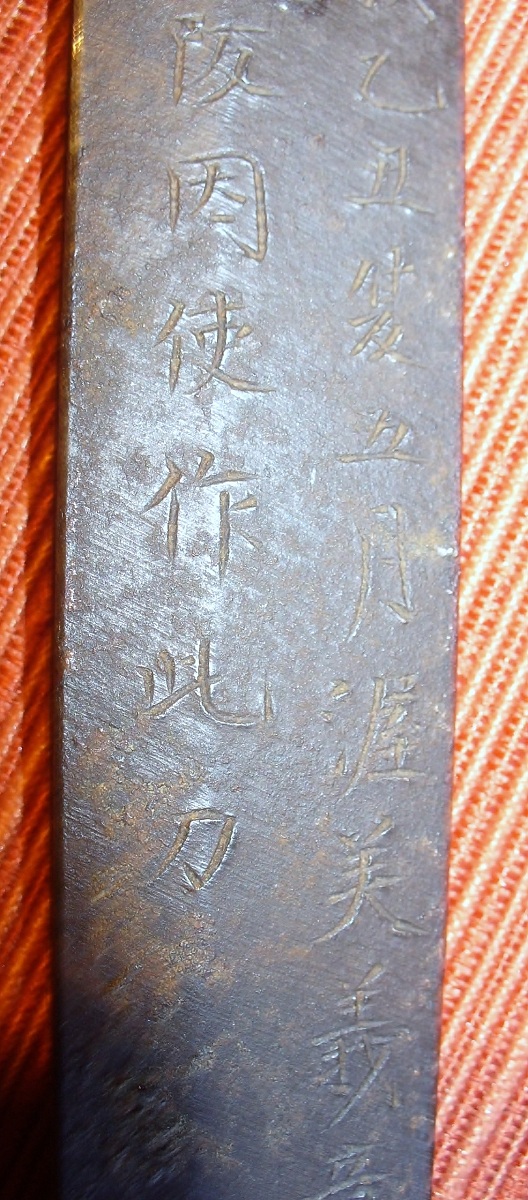 乙丑五月渥美義
阪因使作此刀